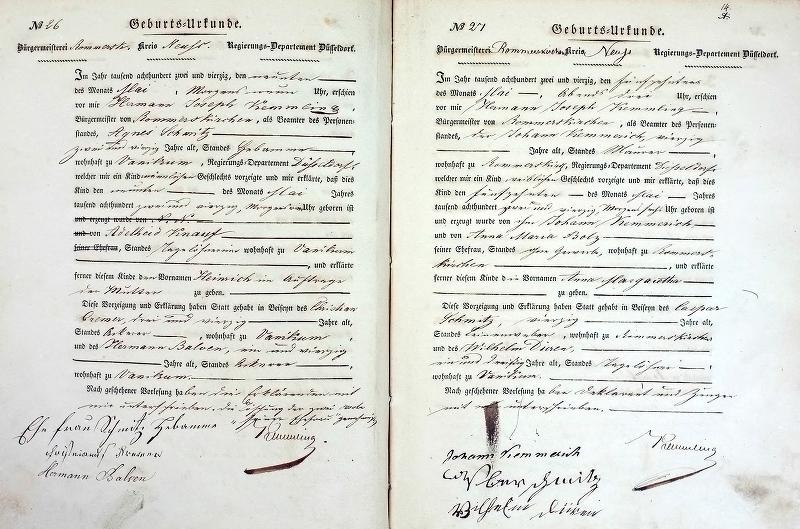 № 26
Geburts-Urkunde.
Bürgermeisterei Rommersk. Kreis Neuss. Regierungs-Departement Düsseldorf.
Im Jahr tausend achthundert zwei und vierzig, den neunten
des Monats Mai, Morgens neun Uhr, erschien
vor mir Hermann Joseph Kemmling
Bürgermeister von Rommerskirchen, als Beamter des Personen-
standes, Agnes Schmitz
zwei und vierzig Jahre alt, Standes Hebamme
wohnhaft zu Vanikum, Regierungs-Departement Düsseldorf,
welcher mir ein Kind männlichen Geschlechts vorzeigte und mir erklärte, daß dies
Kind den neunten des Monats Mai Jahres
tausend achthundert zwei und vierzig Morgens Uhr geboren ist
und erzeugt wurde von
und von Adelheid Knauf
seiner Ehefrau, Standes Tagelöhnerin wohnhaft zu Vanikum
, und erklärte
ferner diesem Kinde den Vornamen Heinrich im Auftrage
der Mutter zu geben.
Diese Vorzeigung und Erklärung haben Statt gehabt in Beiseyn des Christian
Cremer, drei und vierzig Jahre alt,
Standes Ackerer, wohnhaft zu Vanikum,
und des Hermann Balven, ein und vierzig
Jahre alt, Standes Ackerer
wohnhaft zu Vanikum.
Nach geschehener Vorlesung haben die Erklärenden mit
mir unterschrieben, die Löschung der zwei
Ehe Frau Schmitz Hebamme
Kemmling
Christianus Cremer
Hermann Balven
14.
№ 27
Geburts-Urkunde.
Bürgermeisterei Rommerskirchen Kreis Neuss Regierungs-Departement Düsseldorf.
Im Jahr tausend achthundert zwei und vierzig, den fünfzehnten
des Monats Mai, Abends drei Uhr, erschien
vor mir Hermann Joseph Kemmling
Bürgermeister von Rommerskirchen, als Beamter des Personen-
standes, der Johann Kemmerich, vierzig
Jahre alt, Standes Maurer
wohnhaft zu Rommerskirch, Regierungs-Departement Düsseldorf
welcher mir ein Kind weiblichen Geschlechts vorzeigte und mir erklärte, daß dies
Kind den fünfzehnten des Monats Mai Jahres
tausend achthundert zwei und vierzig Morgens Uhr geboren ist
und erzeugt wurde von ihm Johann Kemmerich
und von Anna Maria Bolz
seiner Ehefrau, Standes ohne Gewerb, wohnhaft zu Rommers-
kirchen, und erklärte
ferner diesem Kinde die Vornamen Anna Margaretha
zu geben.
Diese Vorzeigung und Erklärung haben Statt gehabt in Beiseyn des Caspar
Schmitz, vierzig Jahre alt,
Standes Leinenweber, wohnhaft zu Rommerskirchen
und des Wilhelm Düren,
ein und dreißig Jahre alt, Standes Tagelöhner
wohnhaft zu Vanikum.
Nach geschehener Vorlesung haben Deklarant und Zeugen
mit mir unterschrieben.
Johann Kemmerich
Kemmling
Casber Schmitz
Wilhelm Düren